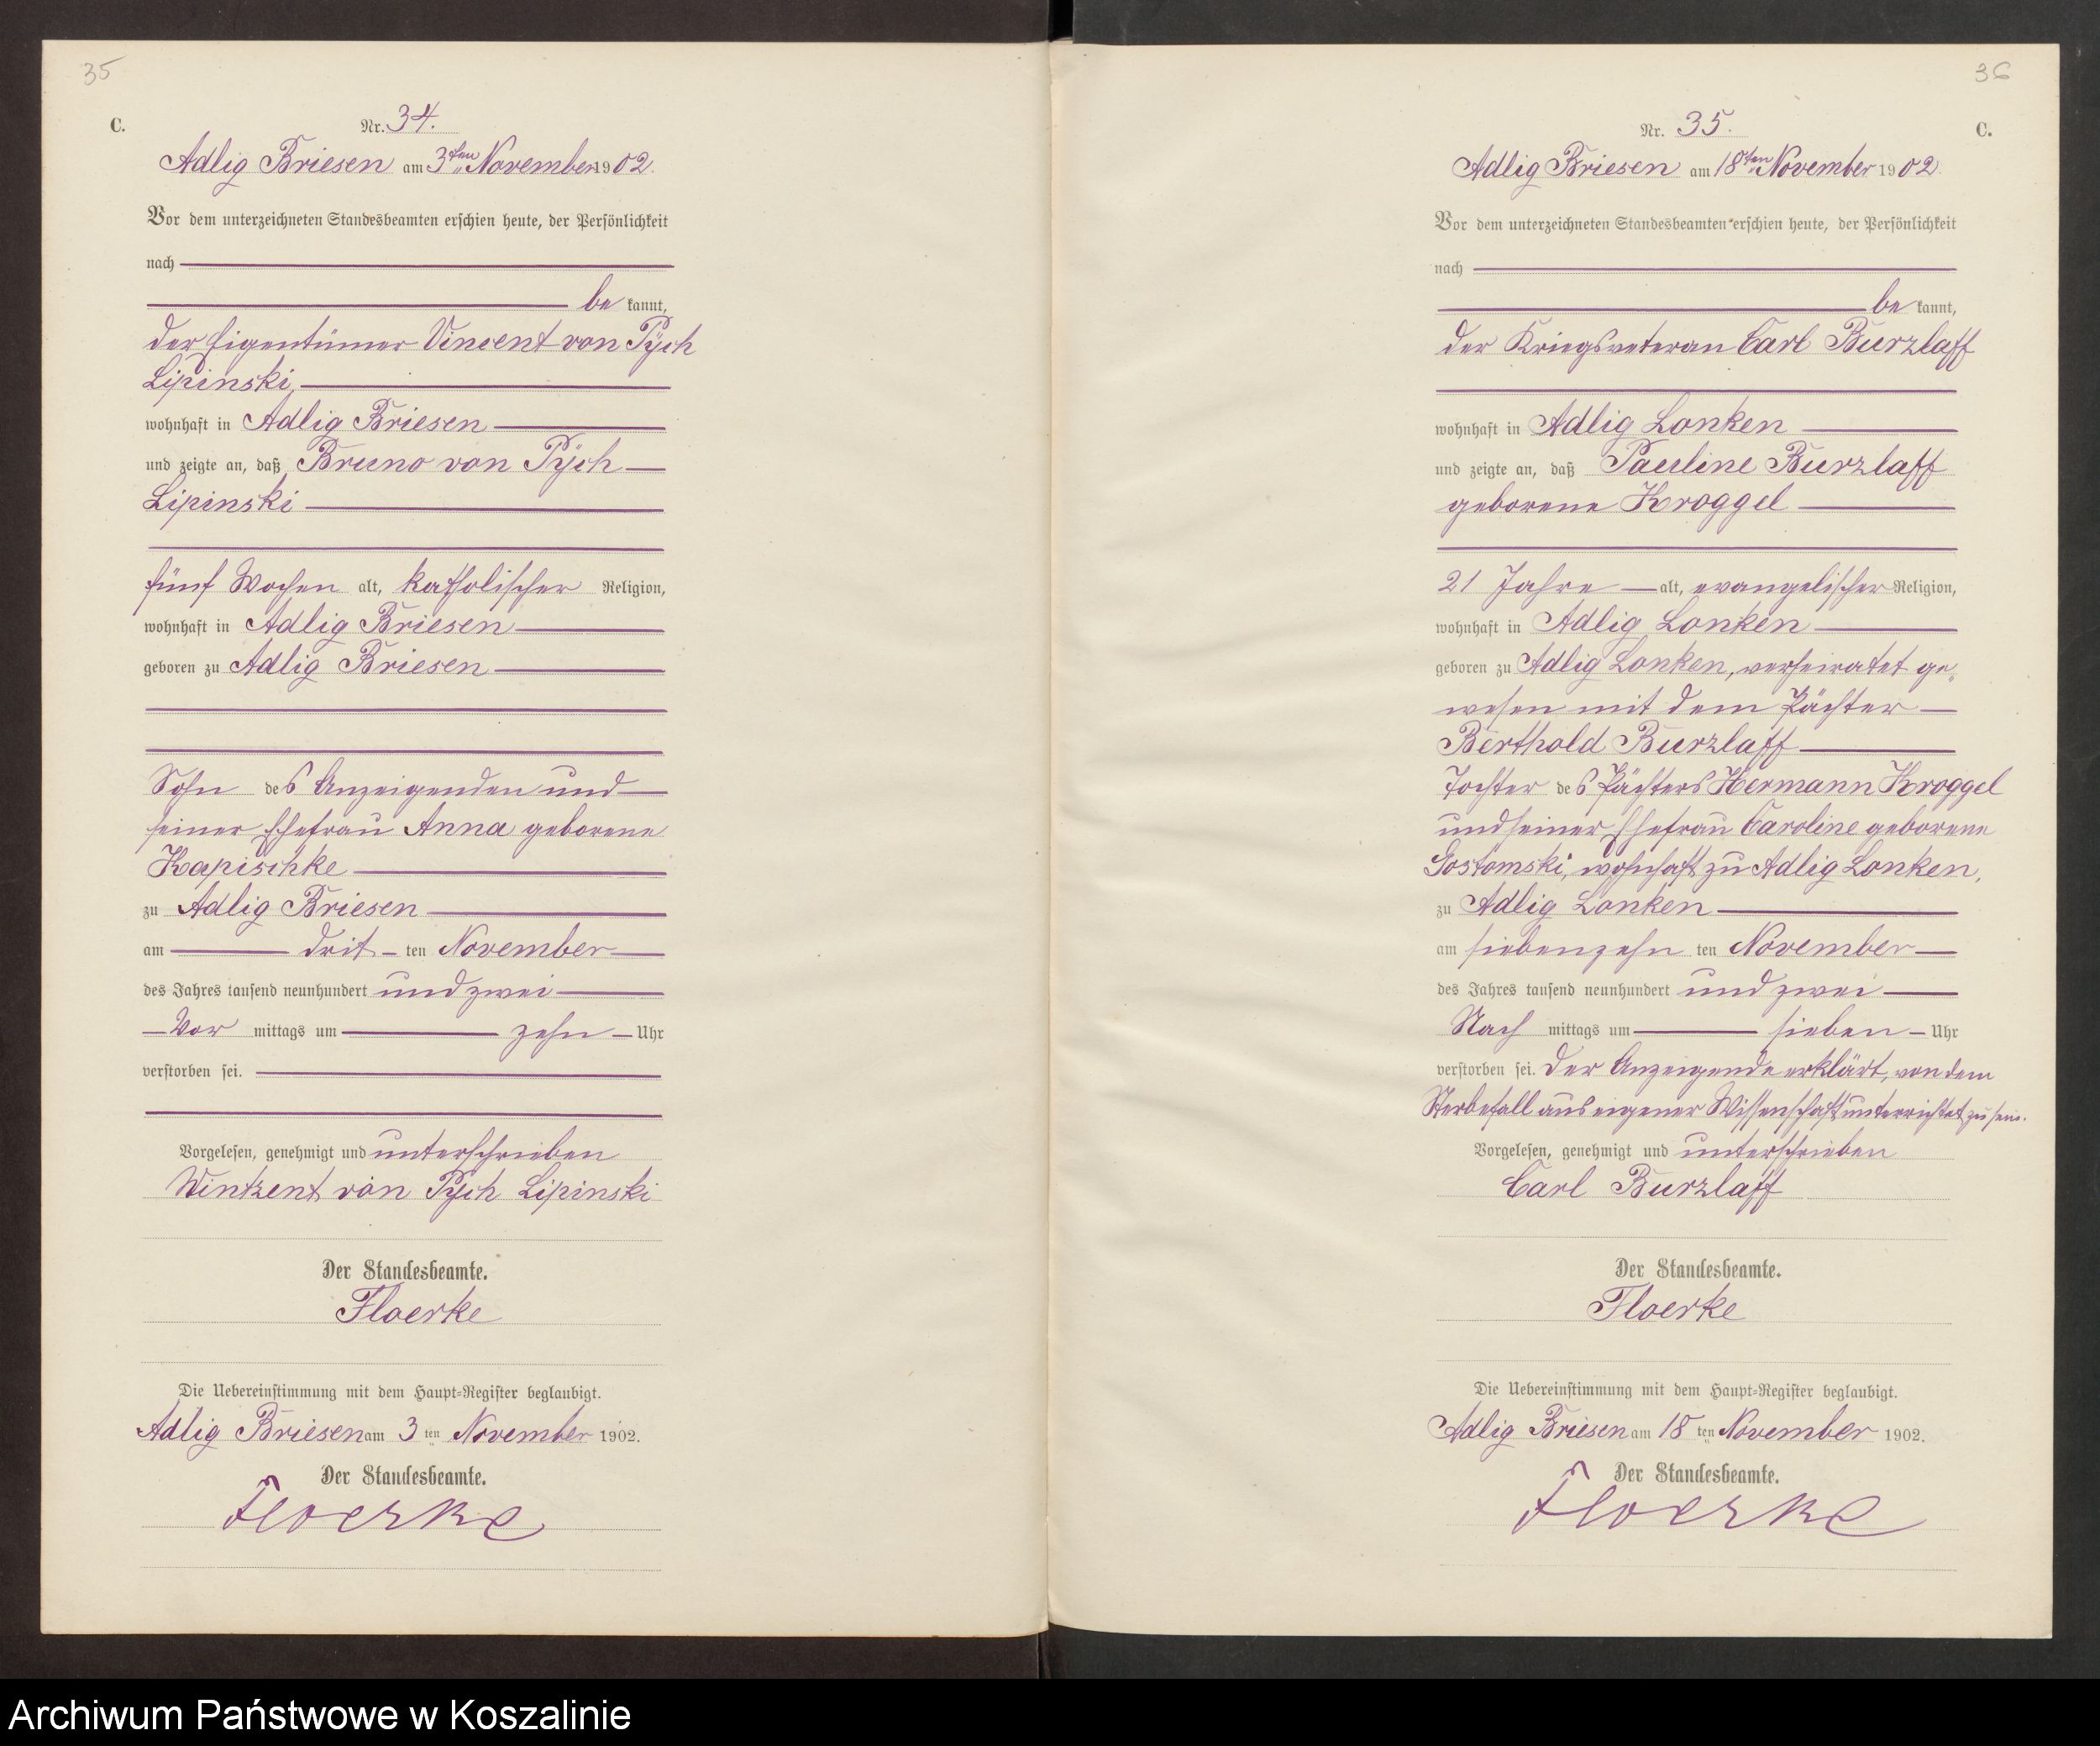 35
C.
Nr. 34.
Adlig Briesen am 3ten November 1902.
Vor dem unterzeichneten Standesbeamten erschien heute, der Persönlichkeit
nach
be kannt,
der Eigentümer Vincent von Pych
Lipinski,
wohnhaft in Adlig Briesen
und zeigte an, daß Bruno von Pych
Lipinski
fünf Wochen alt, katholischer Religion,
wohnhaft in Adlig Briesen
geboren zu Adlig Briesen
Sohn des Anzeigenden und
seiner Ehefrau Anna geborene
Kapischke
zu Adlig Briesen
am drit-ten November
des Jahres tausend neunhundert und zwei
Vor mittags um zehn Uhr
verstorben sei.
Vorgelesen, genehmigt und unterschrieben
Wintzent von Pych Lipinski
Der Standesbeamte.
Floerke
Die Uebereinstimmung mit dem Haupt-Register beglaubigt.
Adlig Briesen am 3 ten November 1902.
Der Standesbeamte.
Floerke
36
Nr. 35.
C.
Adlig Briesen am 18ten November 1902.
Vor dem unterzeichneten Standesbeamten erschien heute, der Persönlichkeit
nach
be kannt,
der Kriegsveteran Carl Burzlaff
wohnhaft in Adlig Lonken
und zeigte an, daß Pauline Burzlaff
geborene Kroggel
21 Jahre alt, evangelischer Religion,
wohnhaft in Adlig Lonken
geboren zu Adlig Lonken, verheiratet ge-
wesen mit dem Pächter
Berthold Burzlaff
Tochter des Pächters Hermann Kroggel
und seiner Ehefrau Caroline geborene
Gostomski, wohnhaft zu Adlig Lonken,
zu Adlig Lonken
am siebenzehn ten November
des Jahres tausend neunhundert und zwei
Nach mittags um sieben Uhr
verstorben sei. Der Anzeigende erklärt, von dem
Sterbefall aus eigener Wissenschaft unterrichtet zu sein.
Vorgelesen, genehmigt und unterschrieben
Carl Burzlaff
Der Standesbeamte.
Floerke
Die Uebereinstimmung mit dem Haupt-Register beglaubigt.
Adlig Briesen am 18 ten November 1902.
Der Standesbeamte.
Floerke
Archiwum Państwowe w Koszalinie